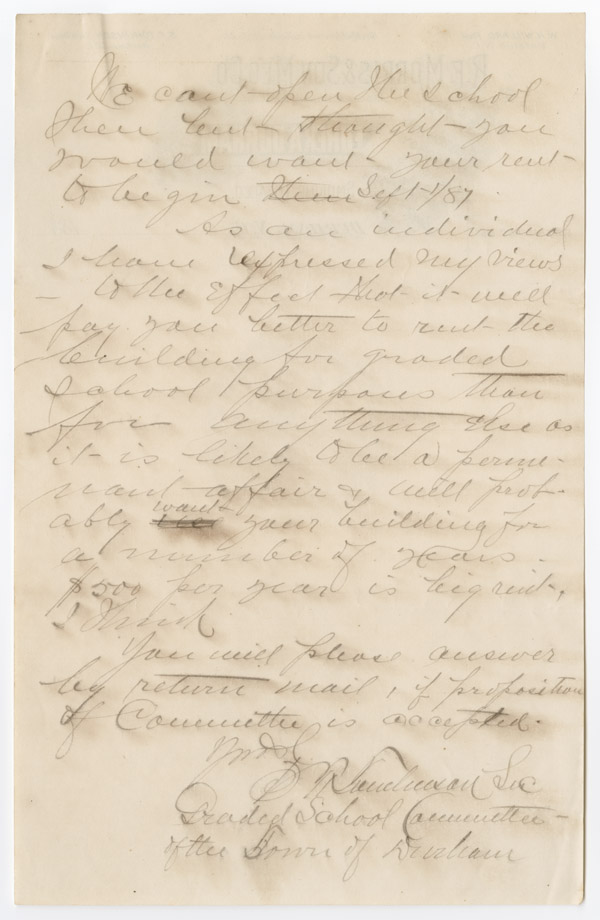 We cant open the school
then but thought you
would want your rent
to begin then Sept 1/87.
As an individual
I have expressed my views
to the effect that it will
pay you better to rent the
building for graded
school purposes than
for anything else as
it is likely to be a perme-
nant affair & will prob-
ably want your building for
a number of years.
$500 per year is big rent,
I think
You will please answer
by return mail, if proposition
of Committee is accepted.
Sec
Graded School Committee
of the Town of Durham